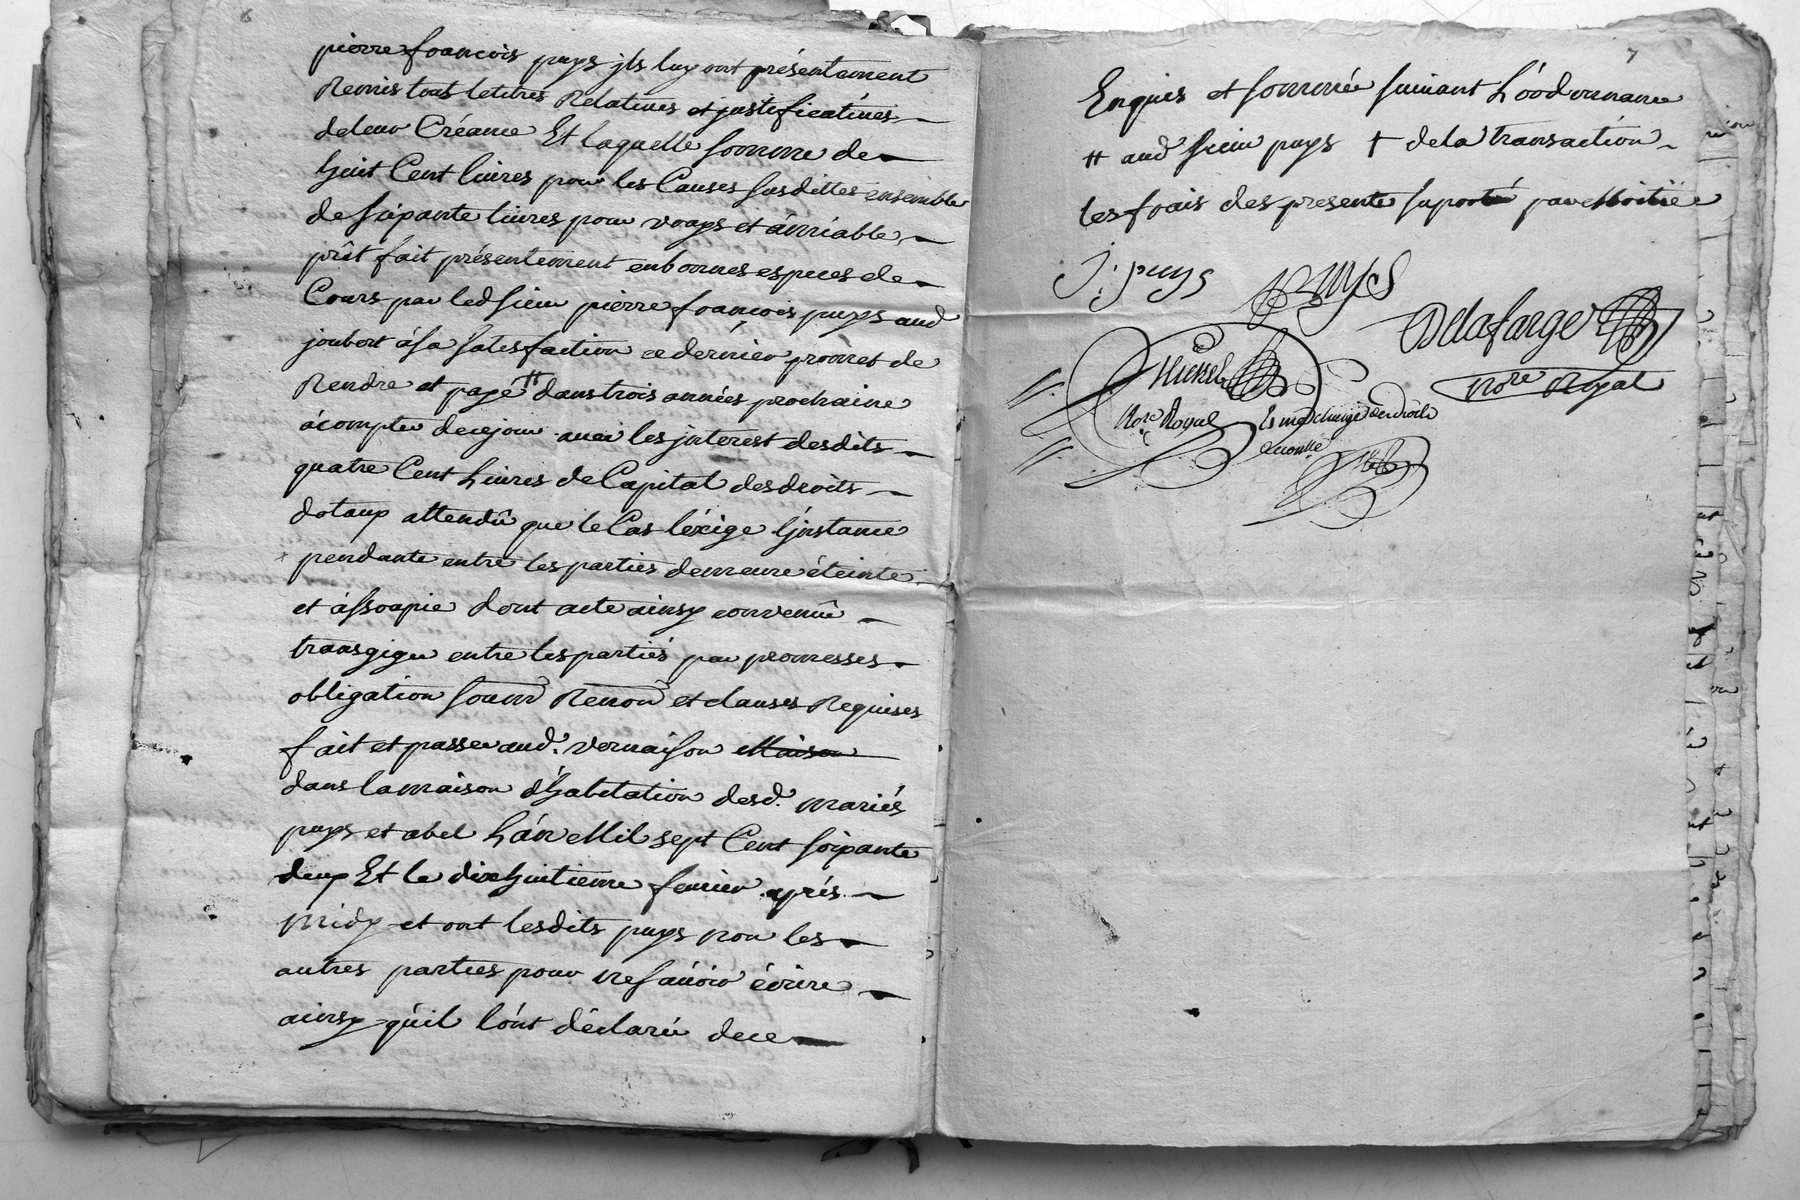 6
pierre françois puys jls luy ont présentement
Remis tous letitres Relatives et justificatives
deleur Créance Et laquelle somme de
huit Cent livres pour les Causes susdittes ensemble
de soixante livres pour voays et ámiable
prêt fait présentement enbonnes especes de
Cours par led sieur pierre françois puys aud
joubert ása satisfaction ce dernier promet de
Rendre et payé # dans trois années prochaine
ácompter decejour avec les jnterest desdits
quatre Cent Livres de Capital desdroits
dotaux attendû que le Cas léxige L'jnstance
pendante entre lesparties demeure éteinte
et ássoupie dont acte ainsy convenû
transgiger entre lesparties par promesses
obligation soum Renon et clauses Requises
fait et passer aud. vernaison Maison
dans lamaison d'habitation desd. mariés
puys et abel Lán Mil sept Cent soixante
deux Et le dixhuitieme fevrier aprés
midy et ont lesdits puys non les
autres parties pour ne sávoir écrire
ainsy quil lónt déclaré dece
7
Enquis et sommée suivant L'óordonnance
# aud sieur puys † dela transaction
les frais des presente suporté par Moitié
j. puys
puys
Delafarge
Nore Royal
Nore Royal